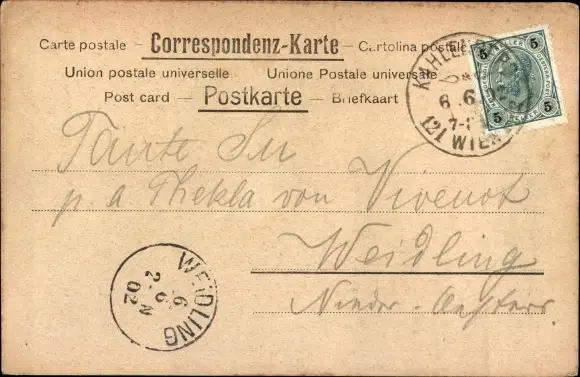 Carte postale – Correspondenz-Karte – Cartolina postale
Union postale universelle Unione Postale universale
Post card – Postkarte – Briefkaart
5 HELLER 5
5 5
KAHLENB
6 6
7-
121 WIEN
Tante Su
p. a Thekla von Vivenot
Weidling
Nieder-Oesterr
WEIDLING
6
2-6 N
02